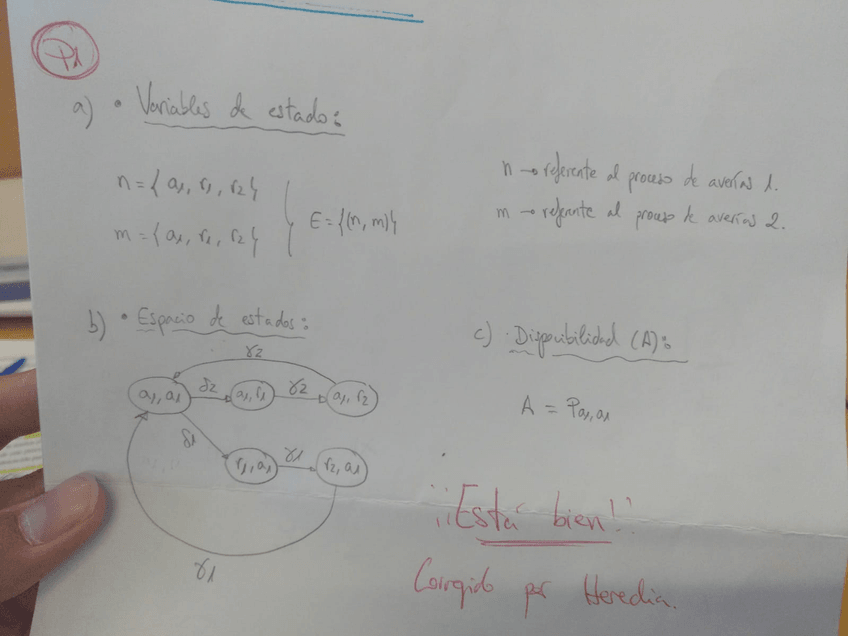 P1
a) • Variables de estado:
n = { a1, r1, r2 }
m = { a1, r1, r2 }
E = {(n, m)}
n → referente al proceso de averías 1.
m → referente al proceso de averías 2.
b) • Espacio de estados:
γ2
a1, a1 δ2 a1, r1 γ2 a1, r2
δ1
r1, a1 γ1 r2, a1
γ1
c) · Disponibilidad (A):
A = Pa1,a1
¡¡Está bien!!
Corregido por Heredia.